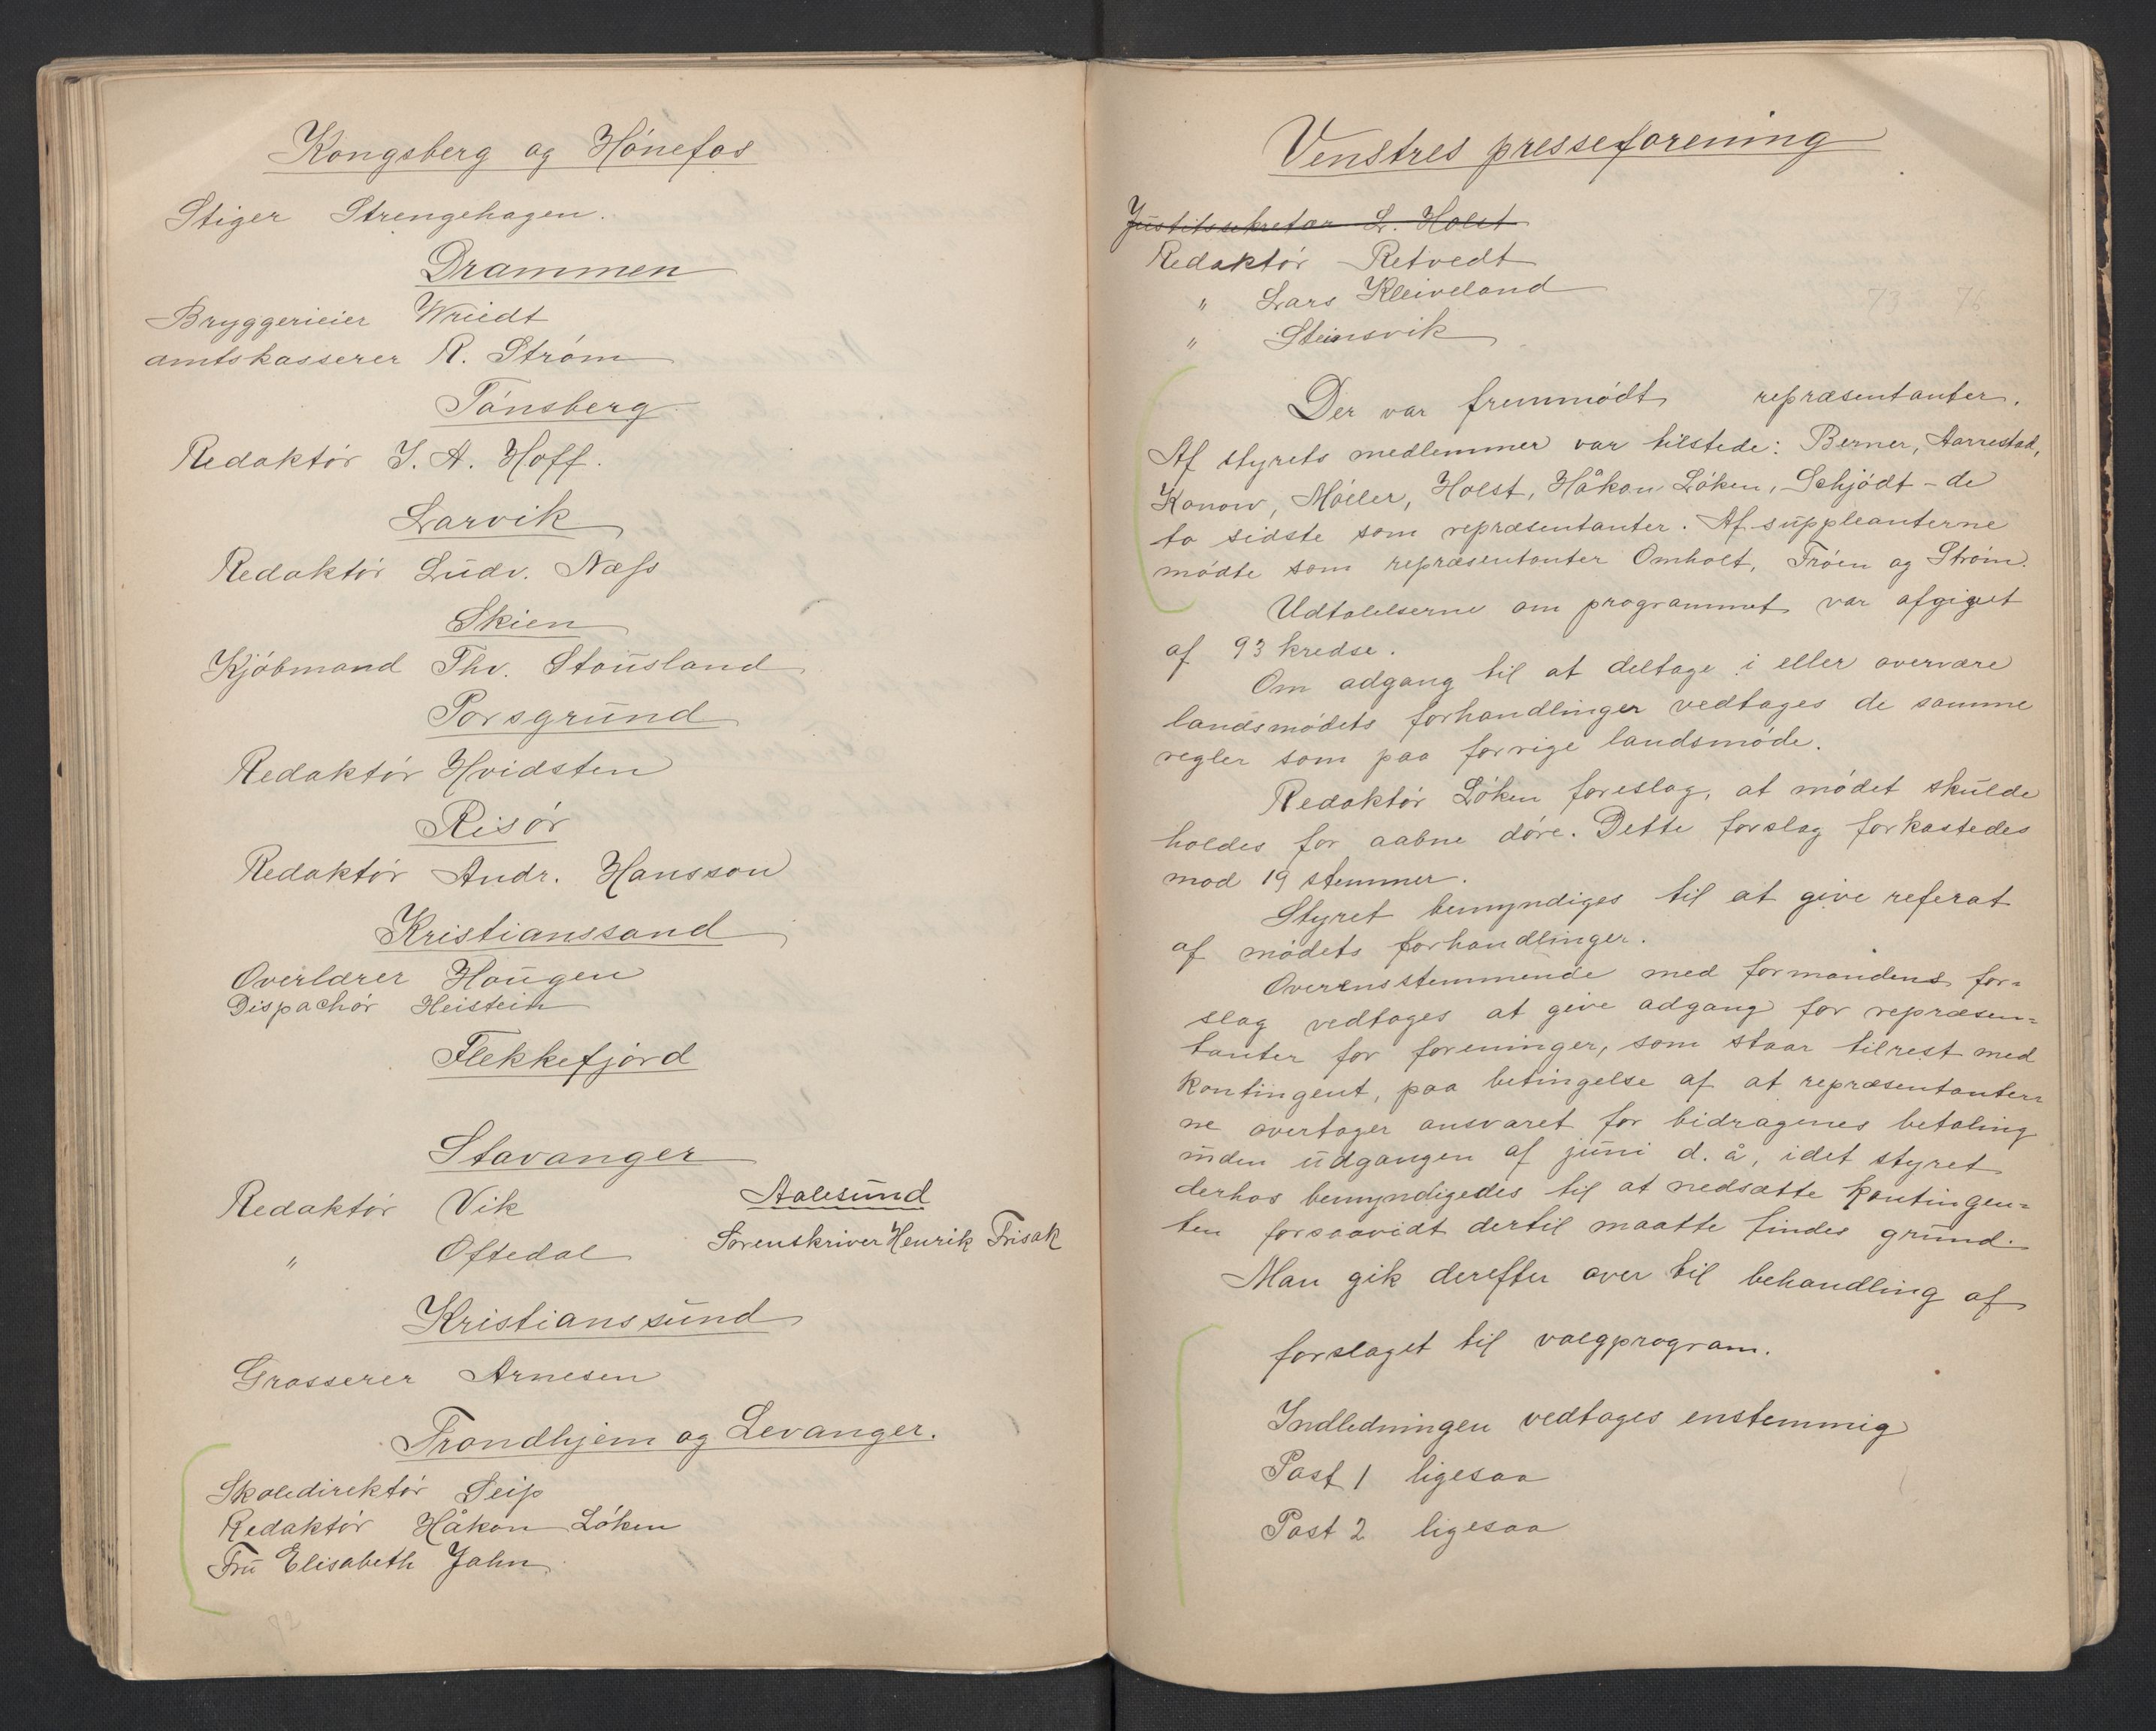 Kongsberg og Hónefos
Stiger Strengehagen.
Drammen
Bryggerieier Wriedt
amtskasserer R. Stróm
Tónsberg
Redaktór J. A. Hoff.
Larvik
Redaktór Ludv. Næss
Skien
Kjóbmand Thv. Stousland
Porsgrund
Redaktór Hvidsten
Risór
Redaktór Andr. Hansson
Kristianssand
Overlærer Haugen
Dispachór Heistein
Flekkefjord
Stavanger
Redaktór Vik
" Oftedal
Aalesund
Sorenskriver Henrik Frisak
Kristianssund
Grosserer Arnesen
Trondhjem og Levanger.
Skoledirektór Seip
Redaktór Håkon Lóken
Fru Elisabeth Jahn
Venstres presseforening
Justitssekretær L. Holst
Redaktór Retvedt
" Lars Kleiveland
" Steinsvik
73 76
Der var fremmódt repræsentanter.
Af styrets medlemmer var tilstede: Berner, Aarrestad,
Konow, Móller, Holst, Håkon Lóken, Schjódt - de
to sidste som repræsentanter. Af suppleanterne
módte som repræsentanter Omholt, Tróen og Stróm.
Udtalelserne om programmet var afgivet
af 93 kredse.
Om adgang til at deltage i eller overvære
landsmódets forhandlinger vedtages de samme
regler som paa forrige landsmóde.
Redaktór Lóken foreslog, at módet skulde
holdes for aabne dóre. Dette forslag forkastedes
mod 19 stemmer.
Styret bemyndiges til at give referat
af módets forhandlinger.
Overensstemmende med formandens for=
slag vedtages at give adgang for repræsen=
tanter for foreninger, som staar tilrest med
kontingent, paa betingelse af at repræsentanter=
ne overtager ansvaret for bidragenes betaling
inden udgangen af juni d. å, idet styret
derhos bemyndigedes til at nedsætte kontingen=
ten forsaavidt dertil maatte findes grund.
Man gik derefter over til behandling af
forslaget til valgprogram.
Indledningen vedtages enstemmig
Post 1 ligesaa
Post 2 ligesaa